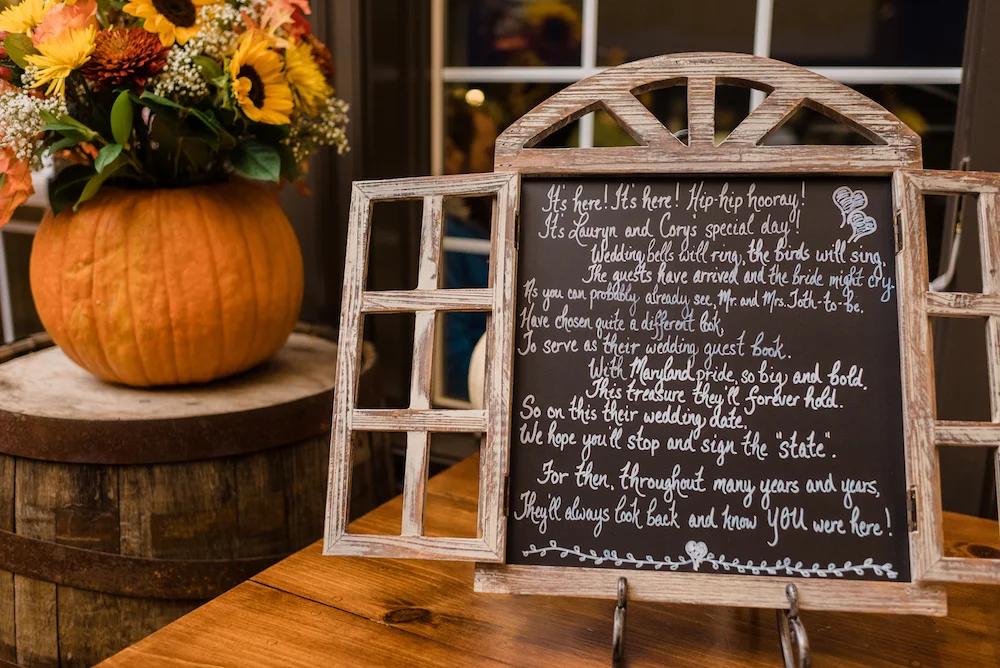 It's here! It's here! Hip-hip hooray!
It's Lauryn and Cory's special day!
Wedding bells will ring, the birds will sing,
The guests have arrived and the bride might cry.
As you can probably already see, Mr. and Mrs. Toth-to-be.
Have chosen quite a different look,
To serve as their wedding guest book.
With Maryland pride, so big and bold.
This treasure they'll forever hold.
So on this their wedding date,
We hope you'll stop and sign the "state".
For then, throughout many years and years,
They'll always look back and know YOU were here!